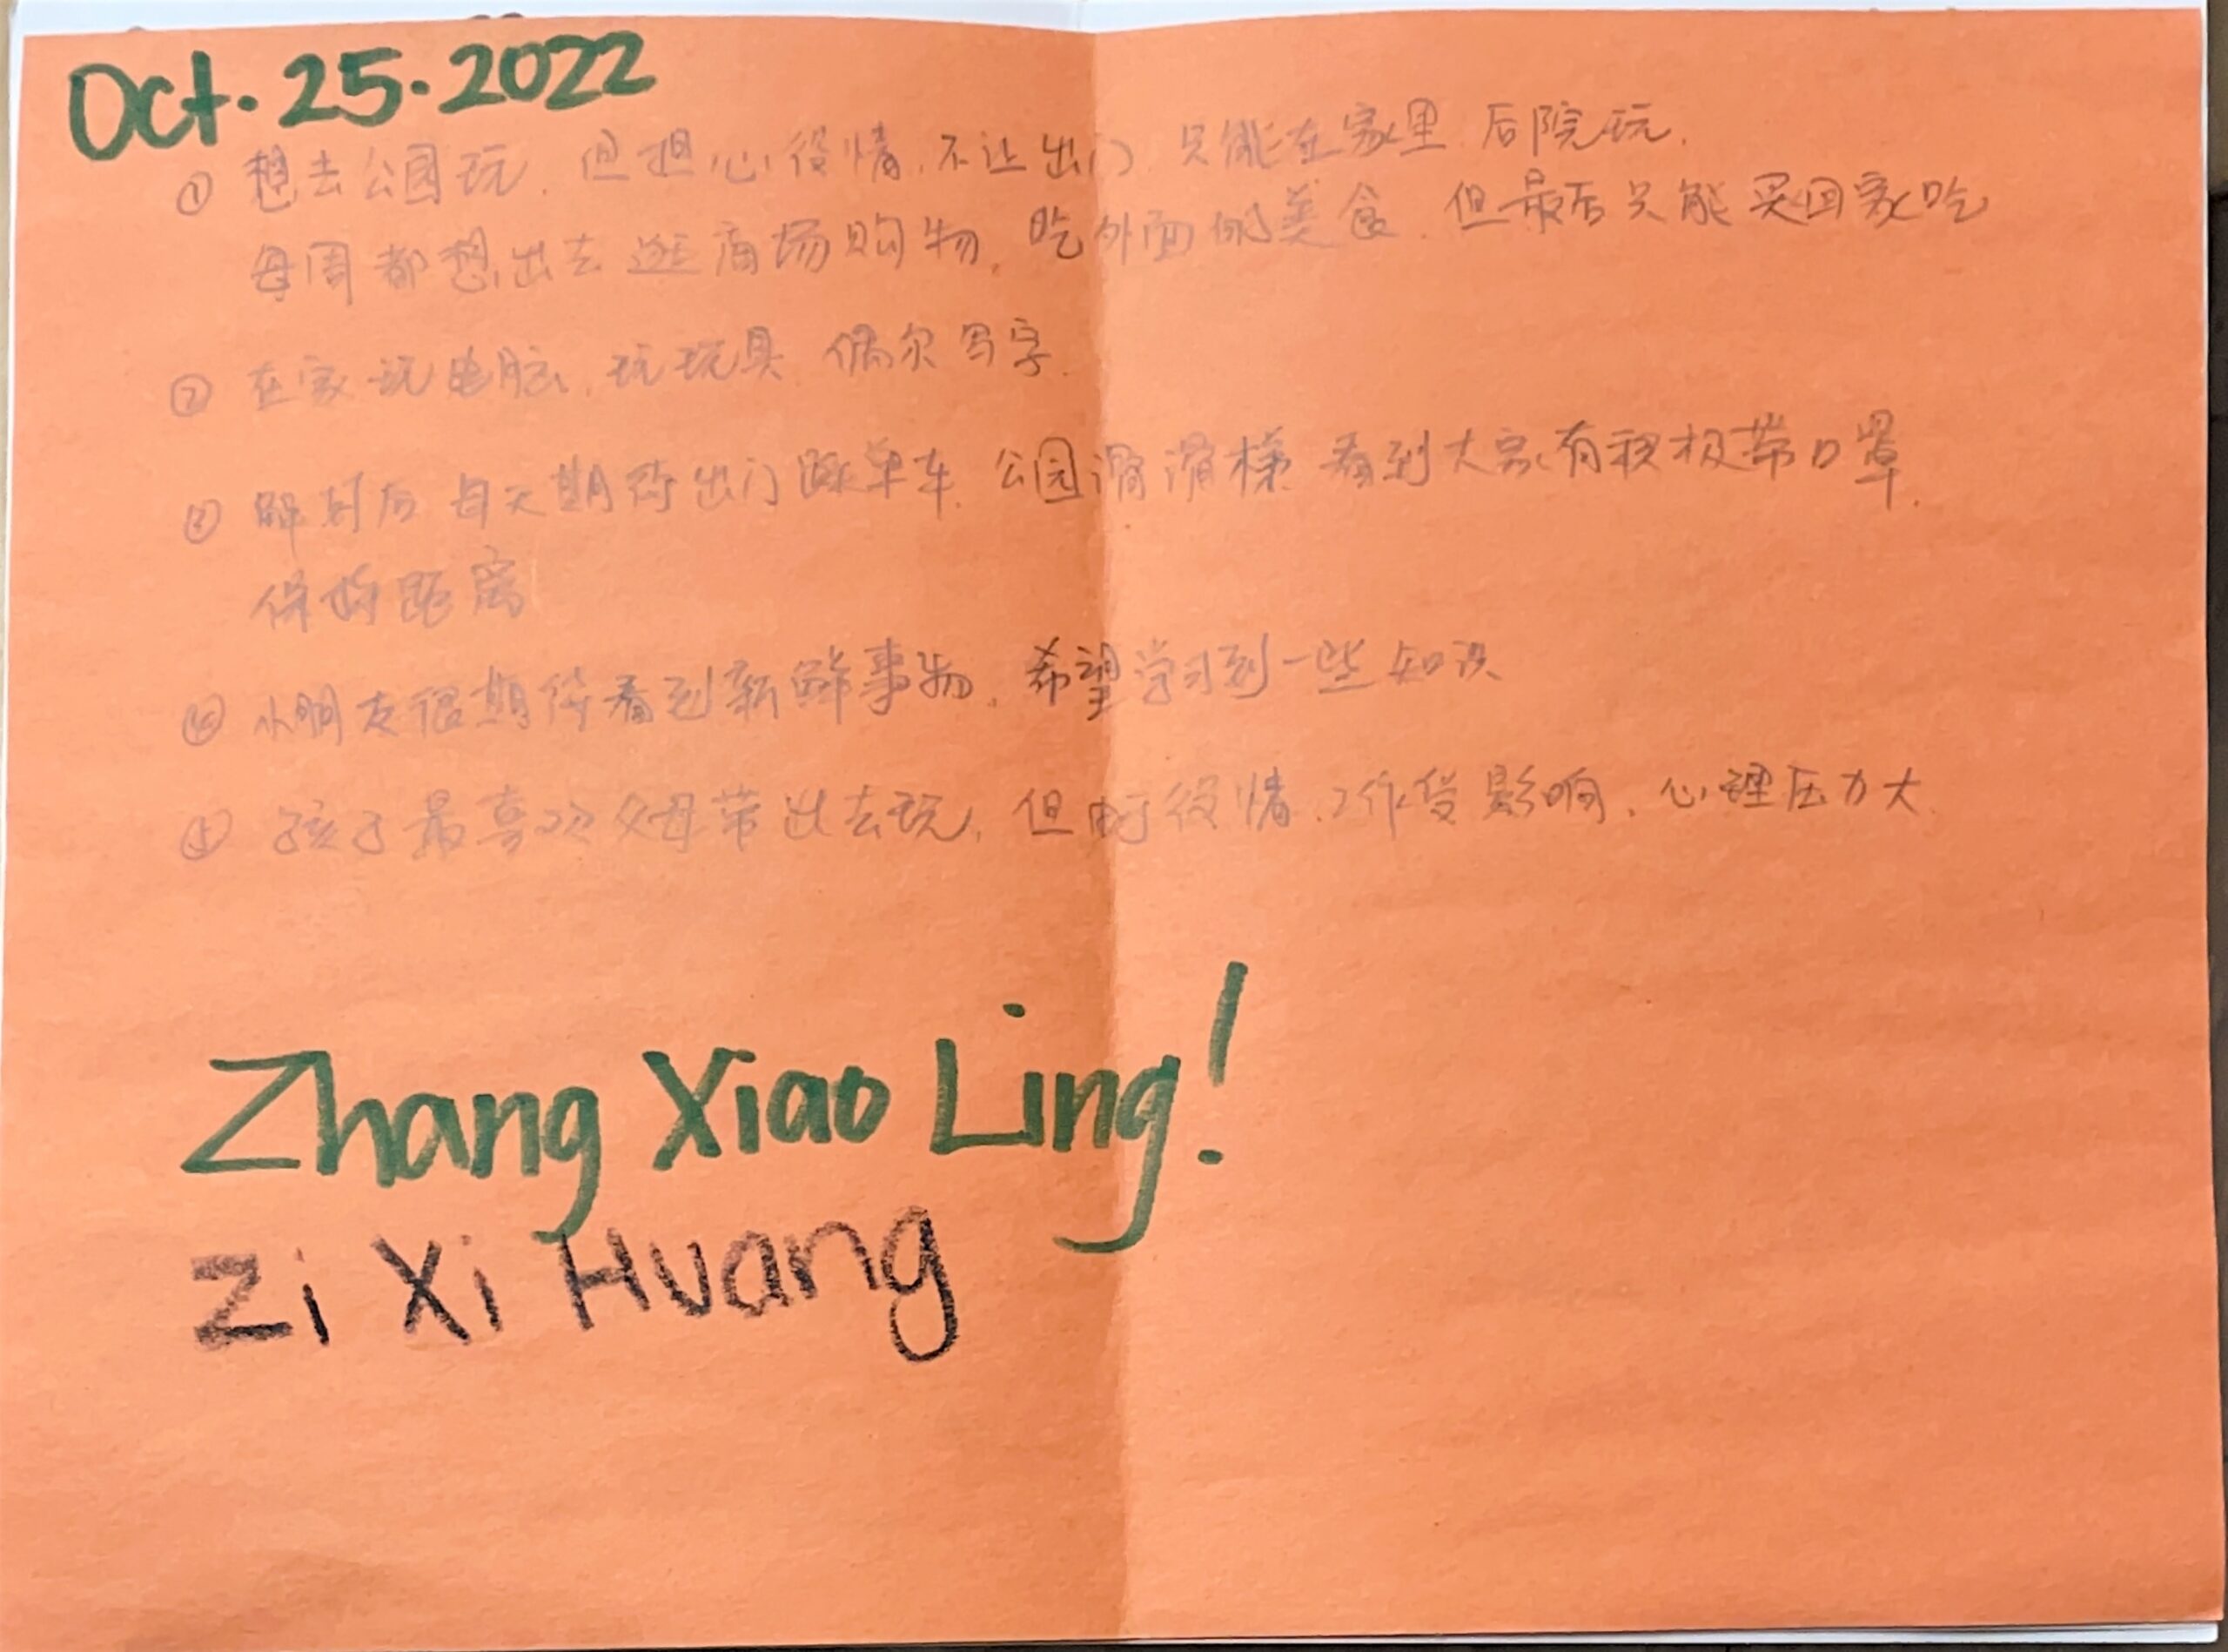 Oct. 25. 2022
① 想去公园玩，但担心役情，不让出门，只能在家里、后院玩.
每周都想出去逛商场购物，吃外面的美食，但最后只能买回家吃
② 在家玩电脑，玩玩具，偶尔写字.
③ 解封后 每天期待出门踩单车，公园滑滑梯 看到大家有积极带口罩，
保持距离
④ 小朋友很期待看到新鲜事物，希望学习到一些知识
⑤ 孩子最喜欢父母带出去玩，但由于役情，工作受影响，心理压力大.
Zhang Xiao Ling!
Zi Xi Huang